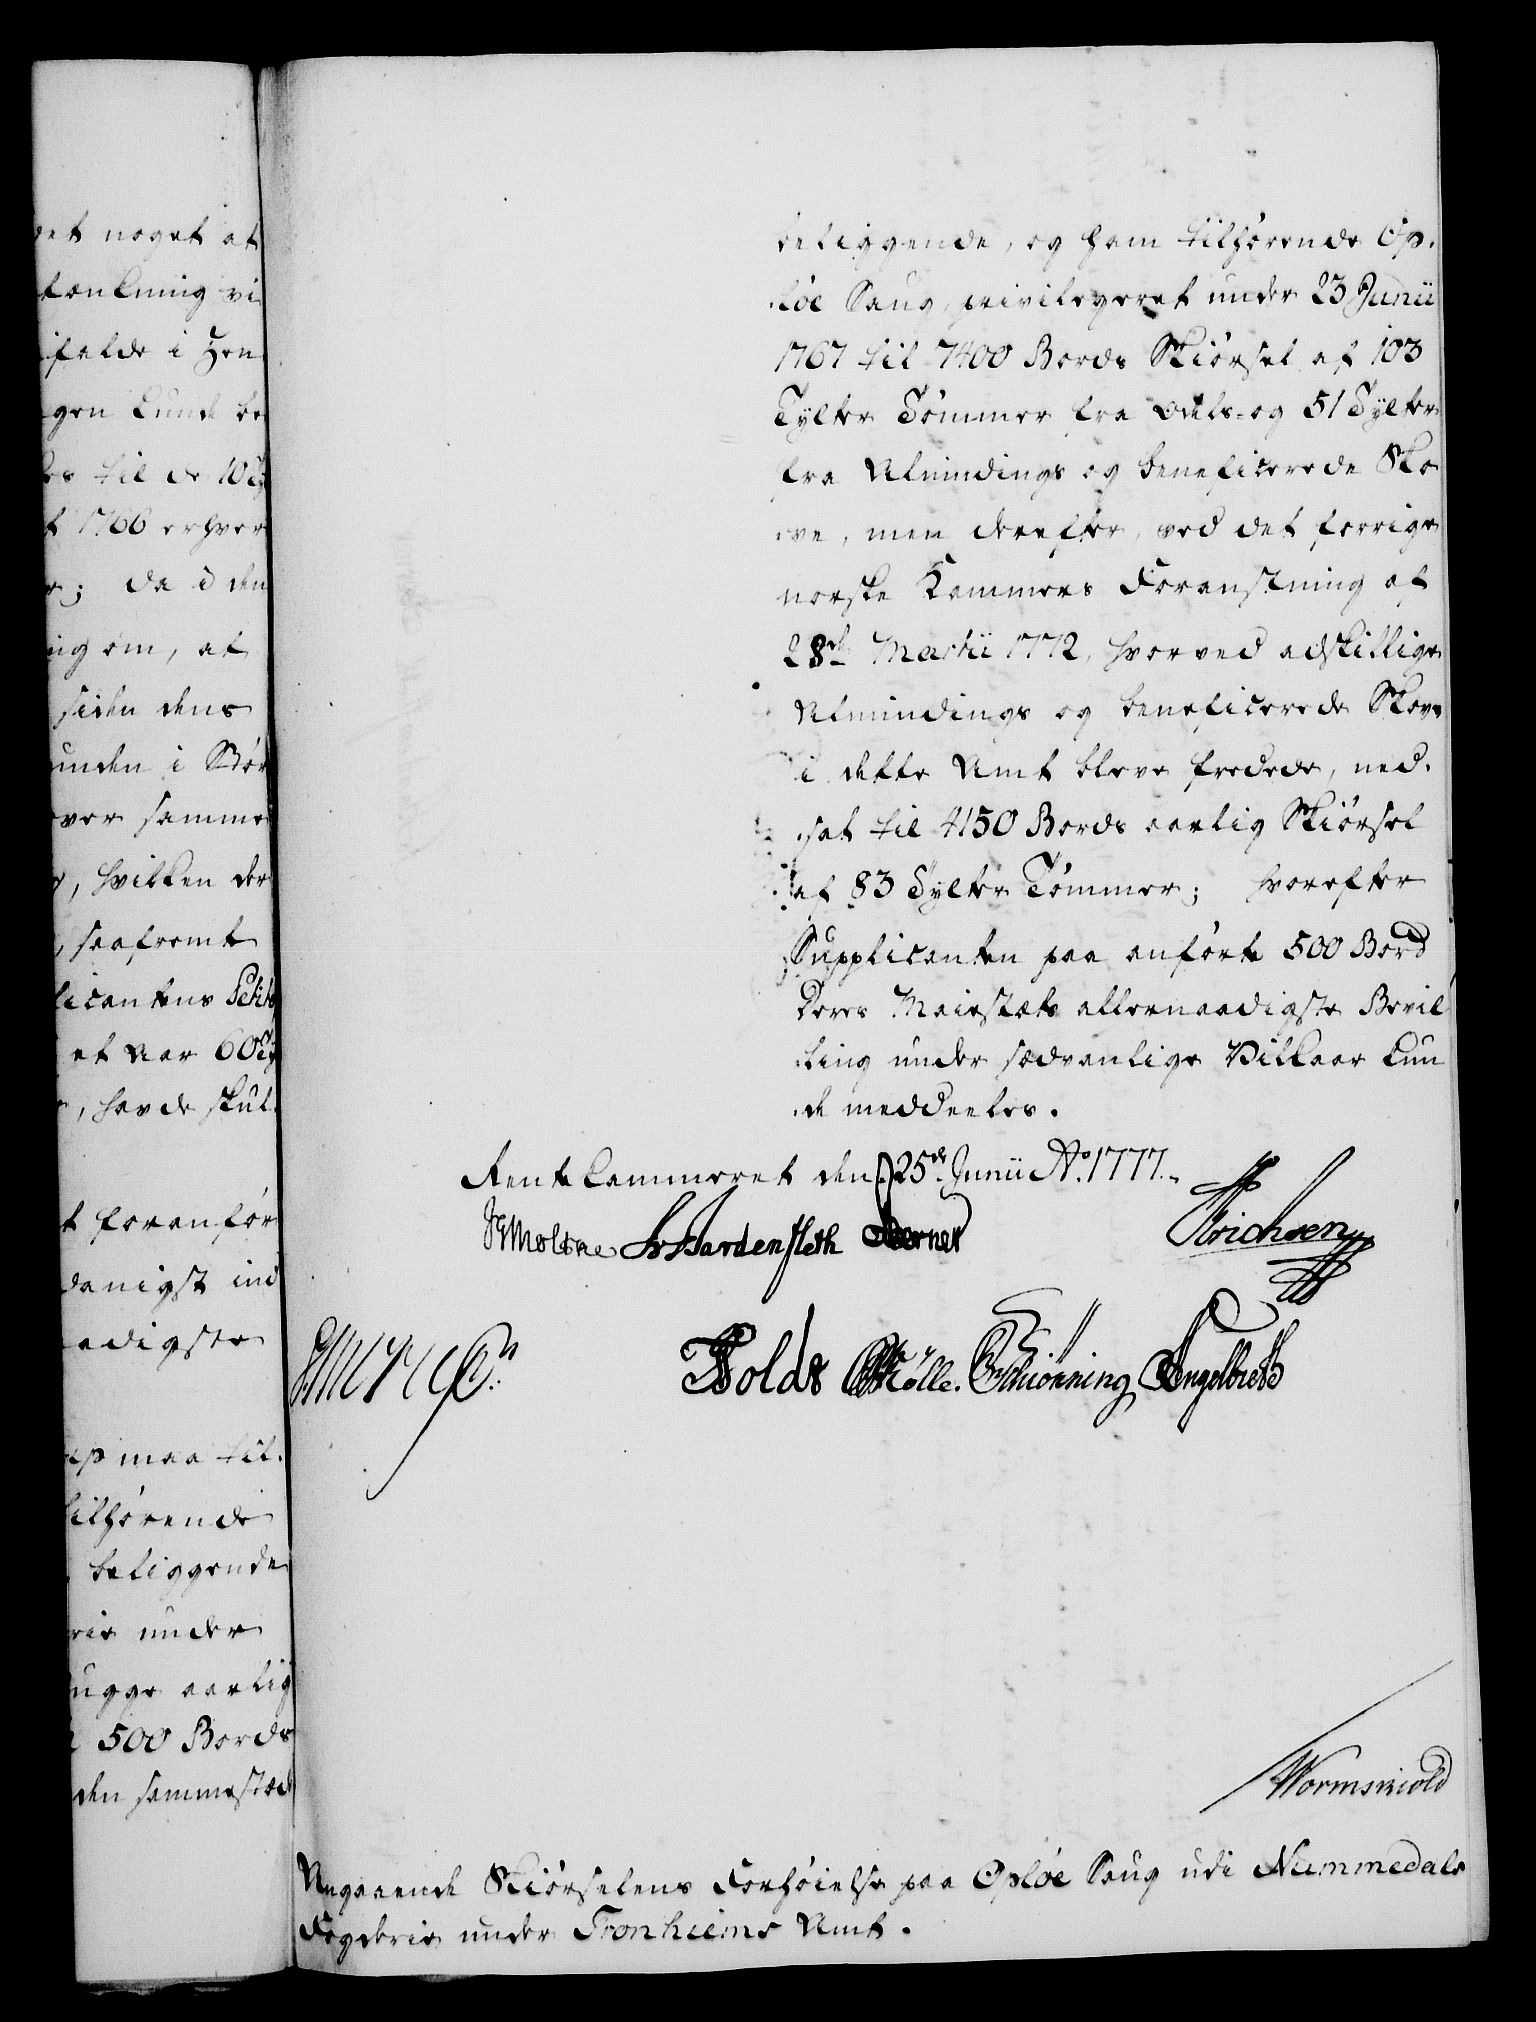 det noget at
tænkning vi
ifalde i Hen
gen kunde be
des til de 10 Ty
t 1766 erhver
r; da i den
ing om, at
siden dens
unden i Stør
over samme
, hvilken der
, saafremt
licantens Petit
et Aar 60 Ty
, havde skul
t foranfør
danigst ind
aadigste
ep maa til
tilhørende
beliggende
rie under
ugge aarlig
500 Bords
den sammestæd
beliggende, og ham tilhørende Op-
-løe Saug, privilegeret under 23 Junii
1767 til 7400 Bords Skiørsel af 103
Tylter Tømmer fra Odels- og 51 Tylter
fra Almindings og beneficerede Sko
-ve, men derefter, ved det forrige
norske Kammers Foranstning af
28de Martii 1772, hvorved adskillige
Almindings og beneficerede Skove
i dette Amt bleve fredede, ned-
-sat til 4150 Bords aarlig Skiørsel
af 83 Tylter Tømmer; hvorefter
Supplicanten paa anførte 500 Bord
Deres Maiestæts allernaadigste Bevil
-ling under sædvanlige Vilkaar kun
-de meddeeles.
Rentekammeret den 25de Junii Ao. 1777.
JGMoltke FrBardenfleth Berner Erichsen
Holdt Mølle. Schiønning Engelbreth
Wormskiold
Angaaende Skiørselens Forhøielse paa Opløe Saug udi Nummedals
Fogderie under Tronhiems Amt.